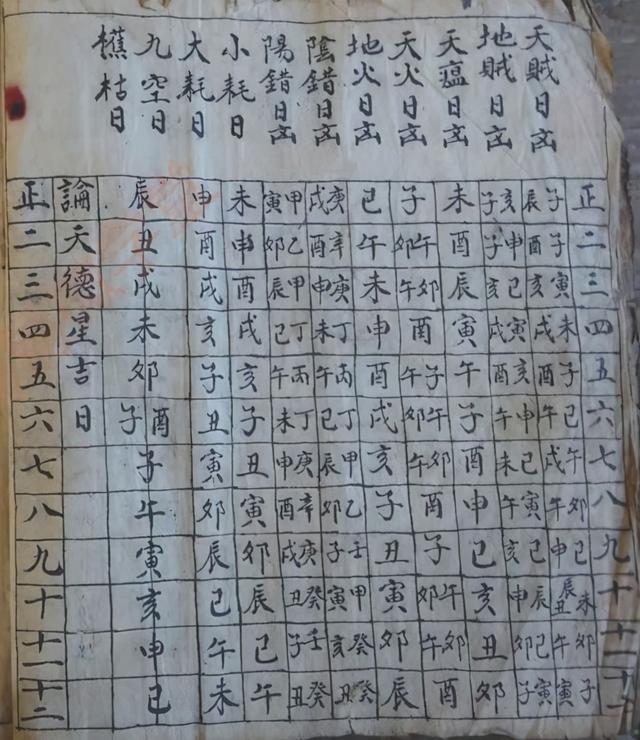 天賊日凶
地賊日凶
天瘟日凶
天火日凶
地火日凶
陰錯日凶
陽錯日凶
小耗日
大耗日
九空日
樵枯日
正 子辰 亥子 未 子 巳 庚戌 甲寅 未 申 辰 論 正
二 子酉 申子 酉 午卯 午 辛酉 乙卯 申 酉 丑 天 二
三 寅亥 巳亥 辰 卯午 未 庚申 甲辰 酉 戌 戌 德 三
四 未戌 寅戌 寅 酉 申 丁未 丁巳 戌 亥 未 星 四
五 子酉 亥酉 午 子午 酉 丙午 丙午 亥 子 卯 吉 五
六 巳午 申午 子 午卯 戌 丁巳 丁未 子 丑 酉子 日 六
七 午戌 巳未 酉 卯午 亥 甲辰 庚申 丑 寅 子 七
八 卯午 寅午 申 酉 子 乙卯 辛酉 寅 卯 午 八
九 巳申 巳亥 巳 子 丑 壬子 庚戌 卯 辰 寅 九
十 未辰丑 辰申 亥 午卯 寅 甲寅 癸丑 辰 巳 亥 十
十一 卯午 巳卯 丑 卯午 卯 癸亥 壬子 巳 午 申 十一
子寅 寅子 卯 酉 辰 癸丑 癸丑 午 未 巳 十二